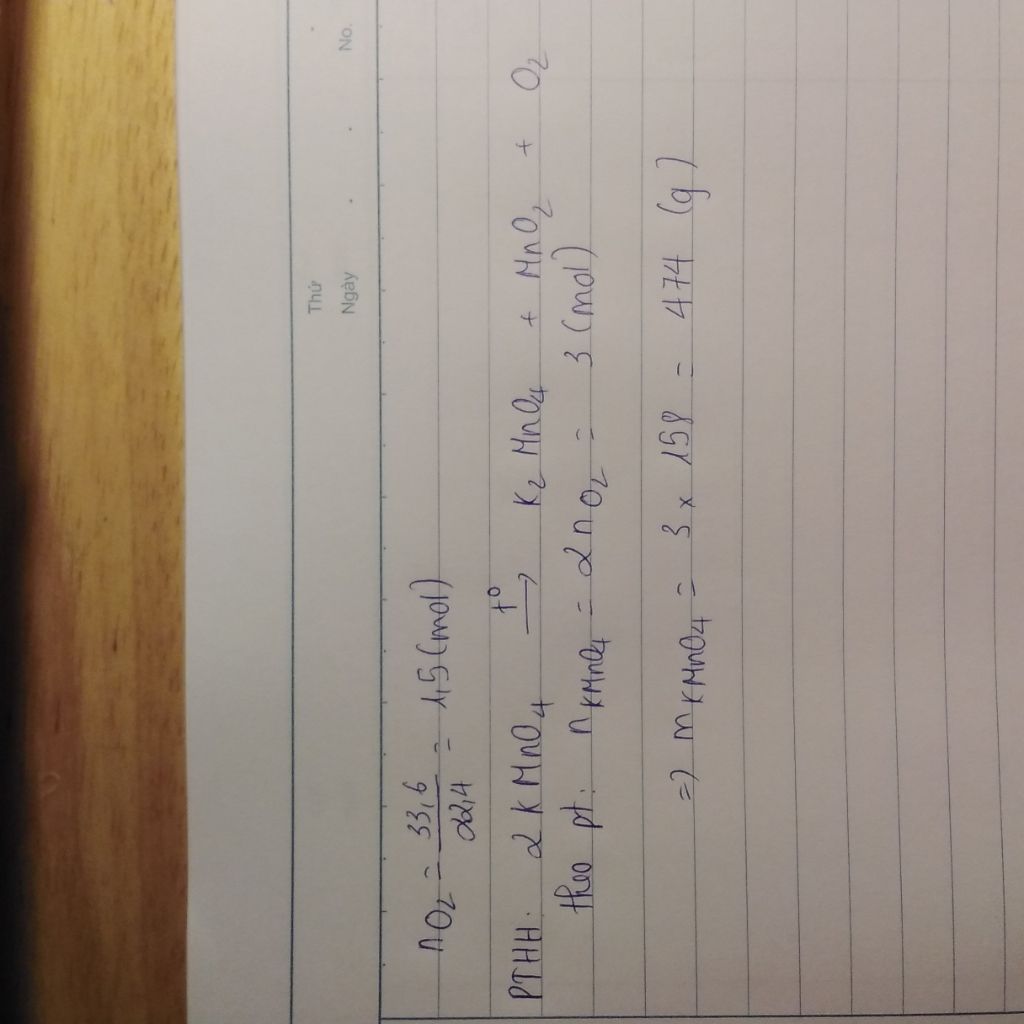 Thứ
Ngày . . No. .
nO₂ = 33,6 / 22,4 = 1,5 (mol)
PTHH: 2 KMnO₄ —t°→ K₂MnO₄ + MnO₂ + O₂
theo pt: nKMnO₄ = 2nO₂ = 3 (mol)
=> mKMnO₄ = 3 x 158 = 474 (g)